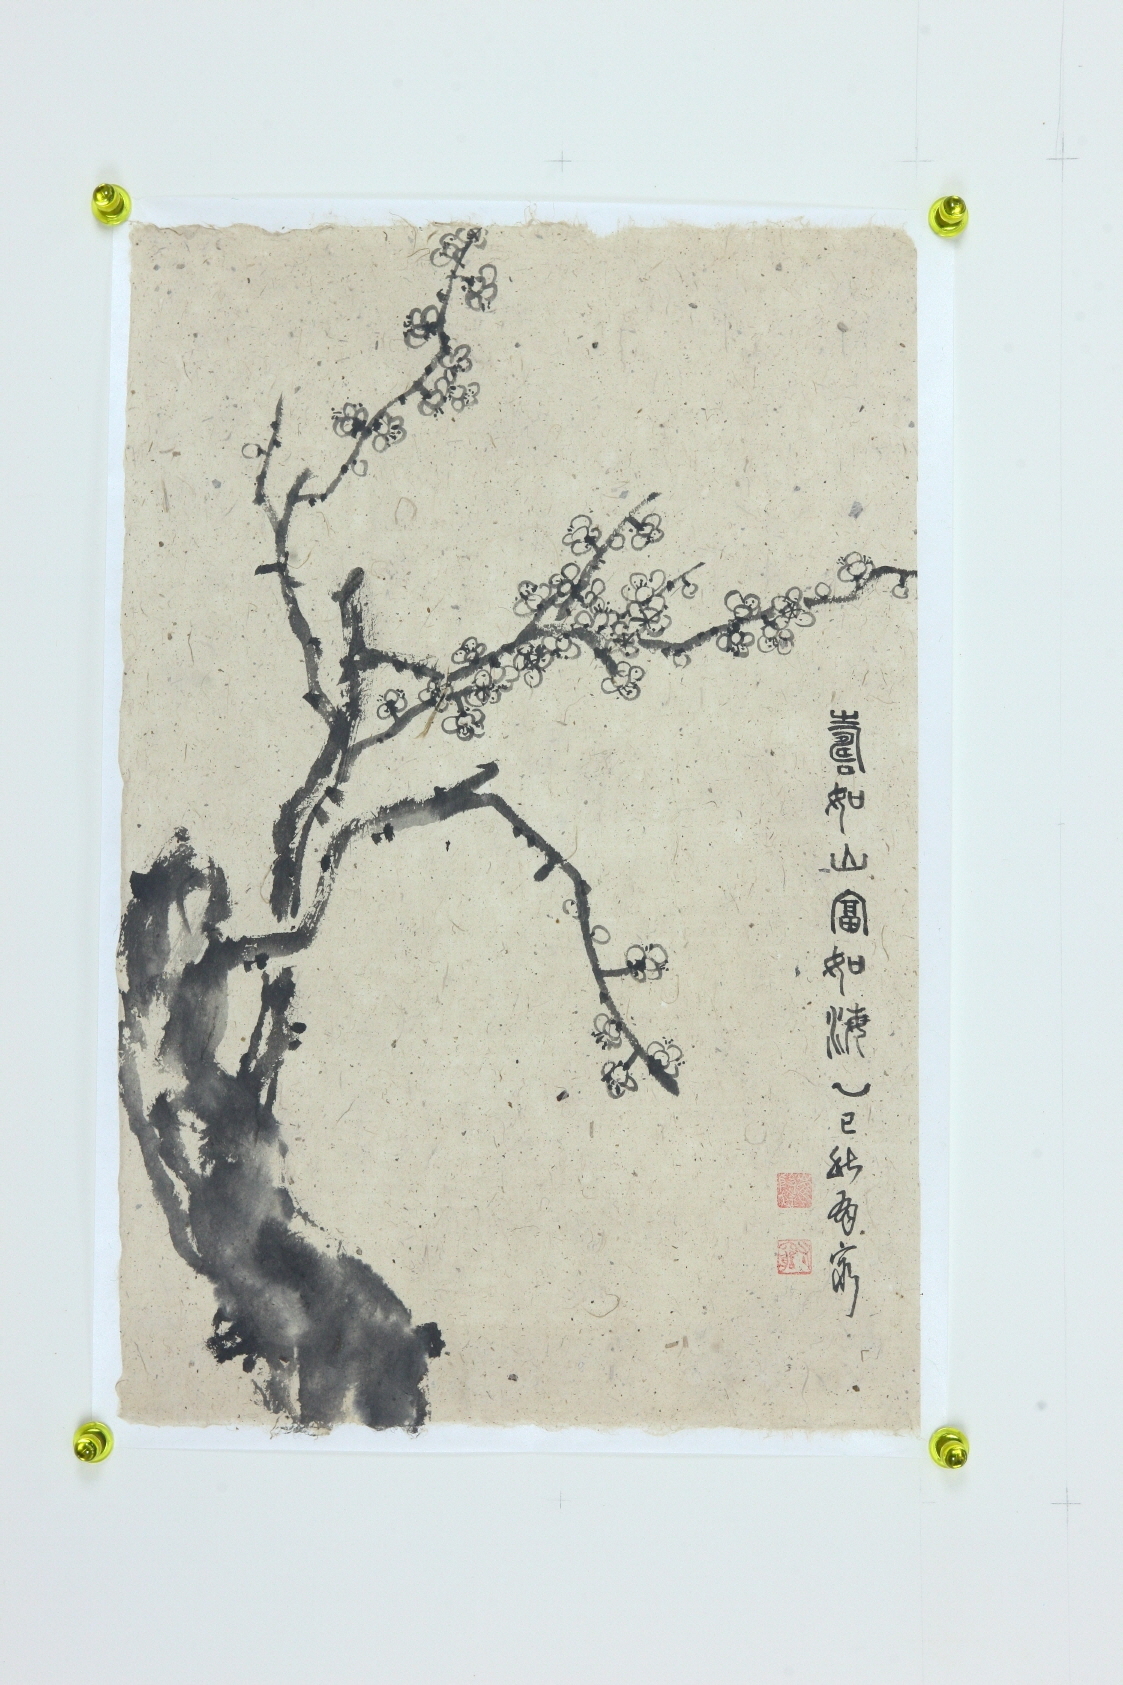 壽如山富如海乙巳秋有家